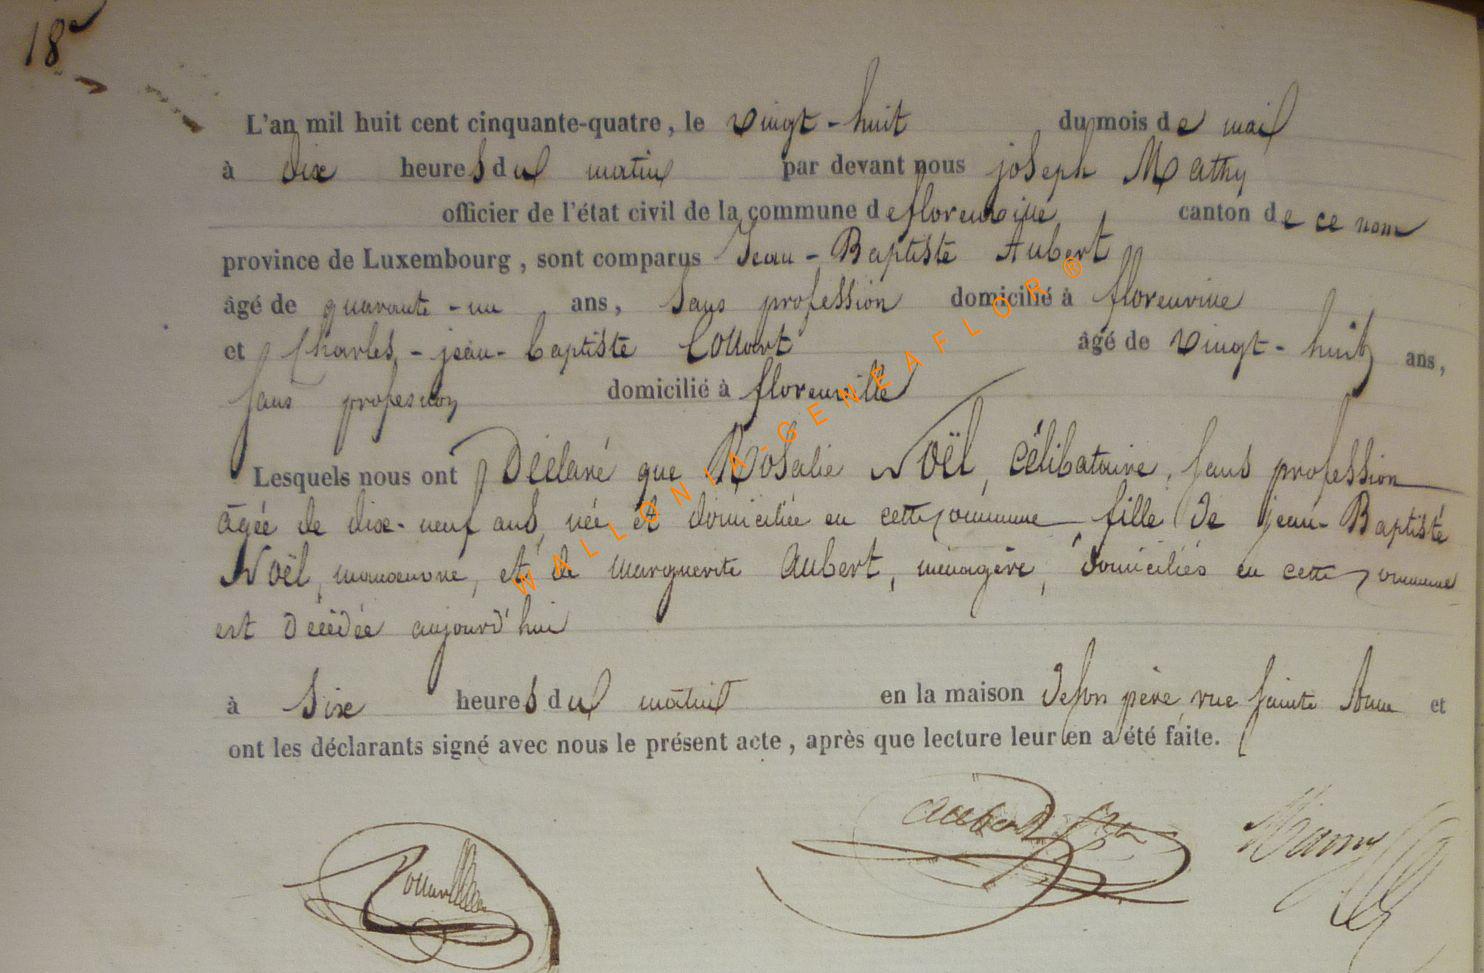 18
L'an mil huit cent cinquante-quatre, le vingt-huit du mois de mai
à dix heures du matin par devant nous joseph Mathy
officier de l'état civil de la commune de florenville canton de ce nom
province de Luxembourg, sont comparus Jean-Baptiste Aubert
âgé de quarante-un ans, sans profession domicilié à florenville
et Charles-jean-baptiste âgé de vingt-huit ans,
sans profession domicilié à florenville
Lesquels nous ont Déclaré que Rosalie Noël, célibataire, sans profession
agée de dix-neuf ans, née et domiciliée en cette commune, fille de jean-Baptiste
Noël, manoeuvre, et de marguerite Aubert, ménagère, domiciliés en cette commune
est Décédée aujourd'hui
à six heures du matin en la maison de son père, rue sainte Anne et
ont les déclarants signé avec nous le présent acte, après que lecture leur en a été faite.
WALLONIA-GENEAFLOR ®
Aubert